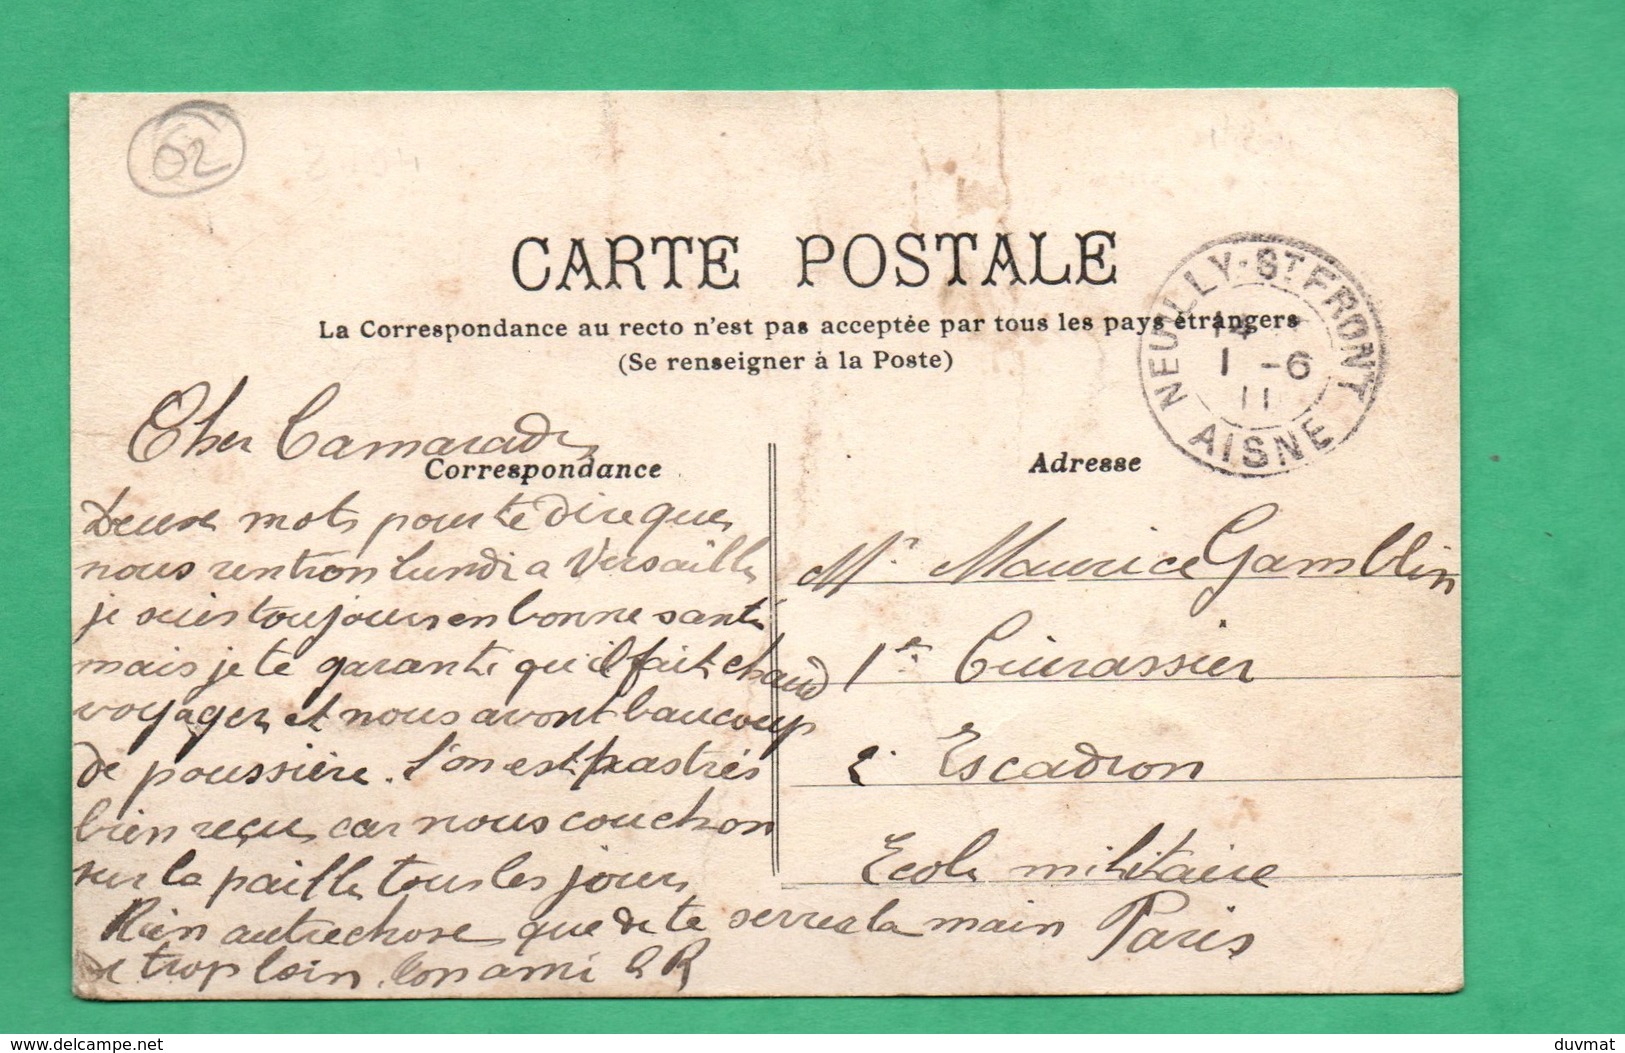 02
CARTE POSTALE
La Correspondance au recto n'est pas acceptée par tous les pays étrangers
(Se renseigner à la Poste)
NEUILLY-ST FRONT
14
1 -6
11
AISNE
Correspondance
Adresse
Cher Camarade
Deux mots pour te dire que
nous rentron lundi a Versaille
je suis toujours en bonne santé
mais je te garanti qu'il fait chaud
voyager et nous avont baucoup
de poussière. l'on est pas très
bien reçu car nous couchon
sur la paille tous les jours
Rien autrechose que de te serrer la main
de trop loin. ton ami R
Mr Maurice Gamblin
1er Cuirassier
2e Escadron
Ecole militaire
Paris
delcampe.net
duvmat